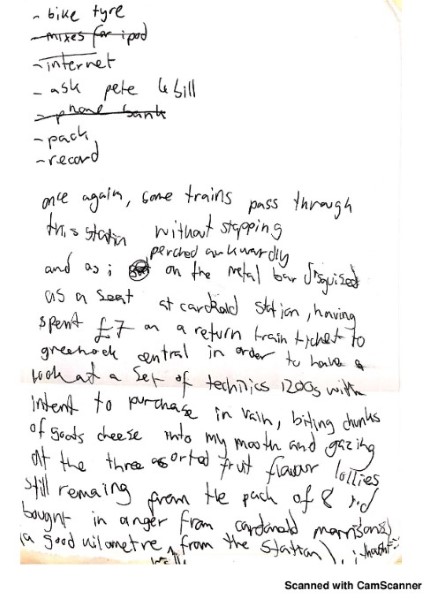 - bike tyre
- mixes for ipod
- internet
- ask pete 4 bill
- phone bank
- pack
- record
once again, some trains pass through
this station without stopping
perched awkwardly
and as i on the metal bar disguised
as a seat at cardonald station, having
spent £7 on a return train ticket to
greenock central in order to have a
look at a set of technics 1200s with
intent to purchase in vain, biting chunks
of goats cheese into my mouth and gazing
at the three assorted fruit flavour lollies
still remaing from the pack of 8 i'd
bought in anger from cardonald morrisons
(a good kilometre from the station), i thought:
well
Scanned with CamScanner